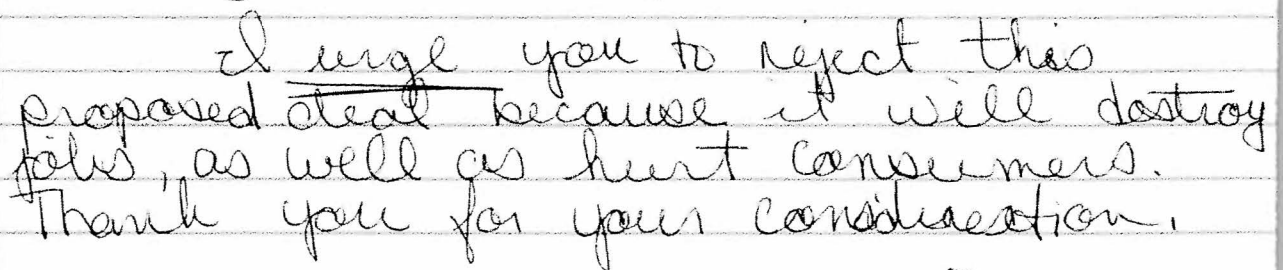 I urge you to reject this
proposed deal because it will dostroy
jobs, as well as hurt consumers.
Thank you for your consideration.